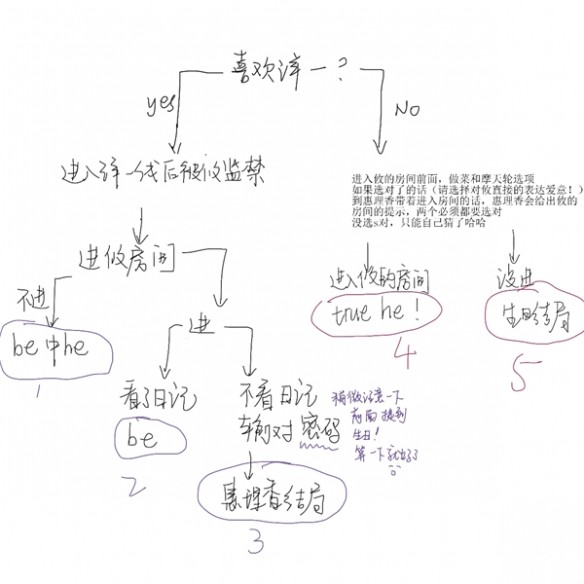 喜欢谆一?
yes
No
进入谆一线后被攸监禁
进入攸的房间前面，做菜和摩天轮选项
如果选对了的话（请选择对攸直接的表达爱意！）
到惠理香带着进入房间的话，惠理香会给出攸的
房间的提示，两个必须都要选对
没选s对，只能自己猜了哈哈
进攸房间
不进
be中he
1
进
看了日记
be
2
不看日记
输对密码
稍微注意一下
前面提到
生日！
算一下就出了
惠理香结局
3
进入攸的房间
true he！
4
没进
生日结局
5